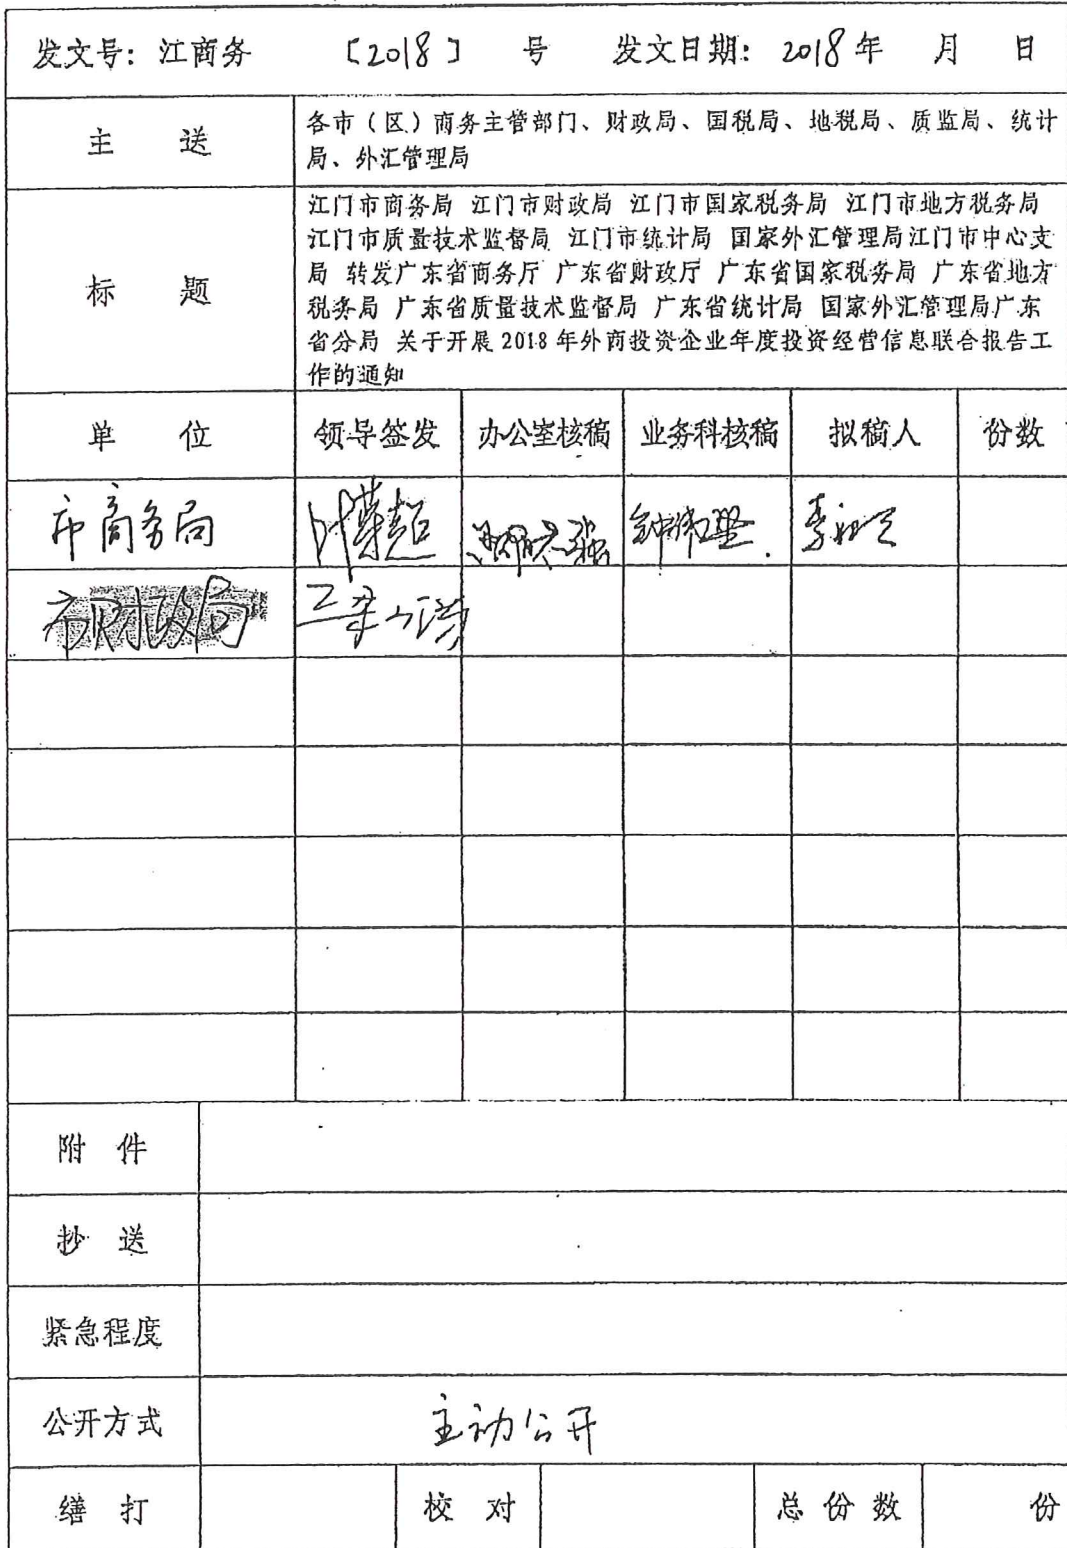 发文号：江商务 〔2018〕 号 发文日期：2018年 月 日
主 送
各市（区）商务主管部门、财政局、国税局、地税局、质监局、统计
局、外汇管理局
标 题
江门市商务局 江门市财政局 江门市国家税务局 江门市地方税务局
江门市质量技术监督局 江门市统计局 国家外汇管理局江门市中心支
局 转发广东省商务厅 广东省财政厅 广东省国家税务局 广东省地方
税务局 广东省质量技术监督局 广东省统计局 国家外汇管理局广东
省分局 关于开展2018年外商投资企业年度投资经营信息联合报告工
作的通知
单 位 领导签发 办公室核稿 业务科核稿 拟稿人 份数
市商务局
市财政局
附 件
抄 送
紧急程度
公开方式 主动公开
缮 打 校 对 总份数 份